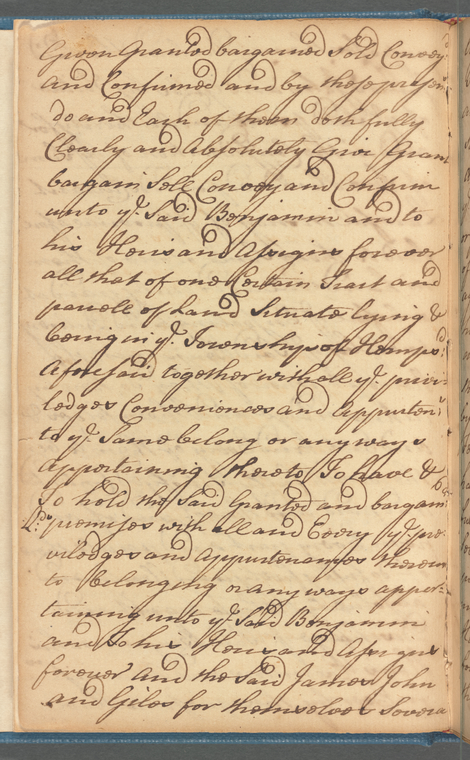 Given Granted bargained Sold Convey
and Confirmed and by these presen
do and Each of them doth fully
Clearly and Absolutely Give Grant
bargain Sell Convey and Confirm
unto ye. Said Benjamin and to
his Heirs and Assigns forever
all that of one Certain Tract and
parcell of Land Situate lying &
being in ye. Township of Hemps:d
Aforesaid together with all ye. privi
ledges Conveniences and Appurten:s
to ye. Same belong or any ways
Appertaining thereto To have &
To hold the Said Granted and bargain
premises with all and Every ye. pre
viledges and Appurtenances thereun
to belonging or any ways apper=
taining unto ye. Said Benjamin
and To his Heirs and Assigns
forever And the Said James John
and Giles for themselves Severa